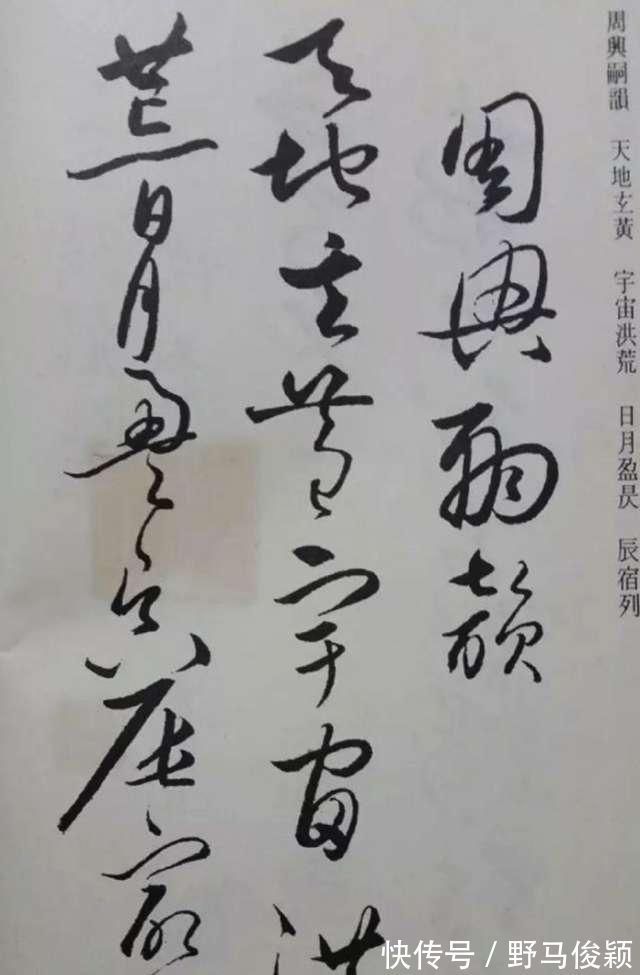 周興嗣韻 天地玄黃 宇宙洪荒 日月盈昃 辰宿列
周興嗣韻
天地玄黃宇宙洪
荒日月盈昃辰宿
快传号/野马俊颖